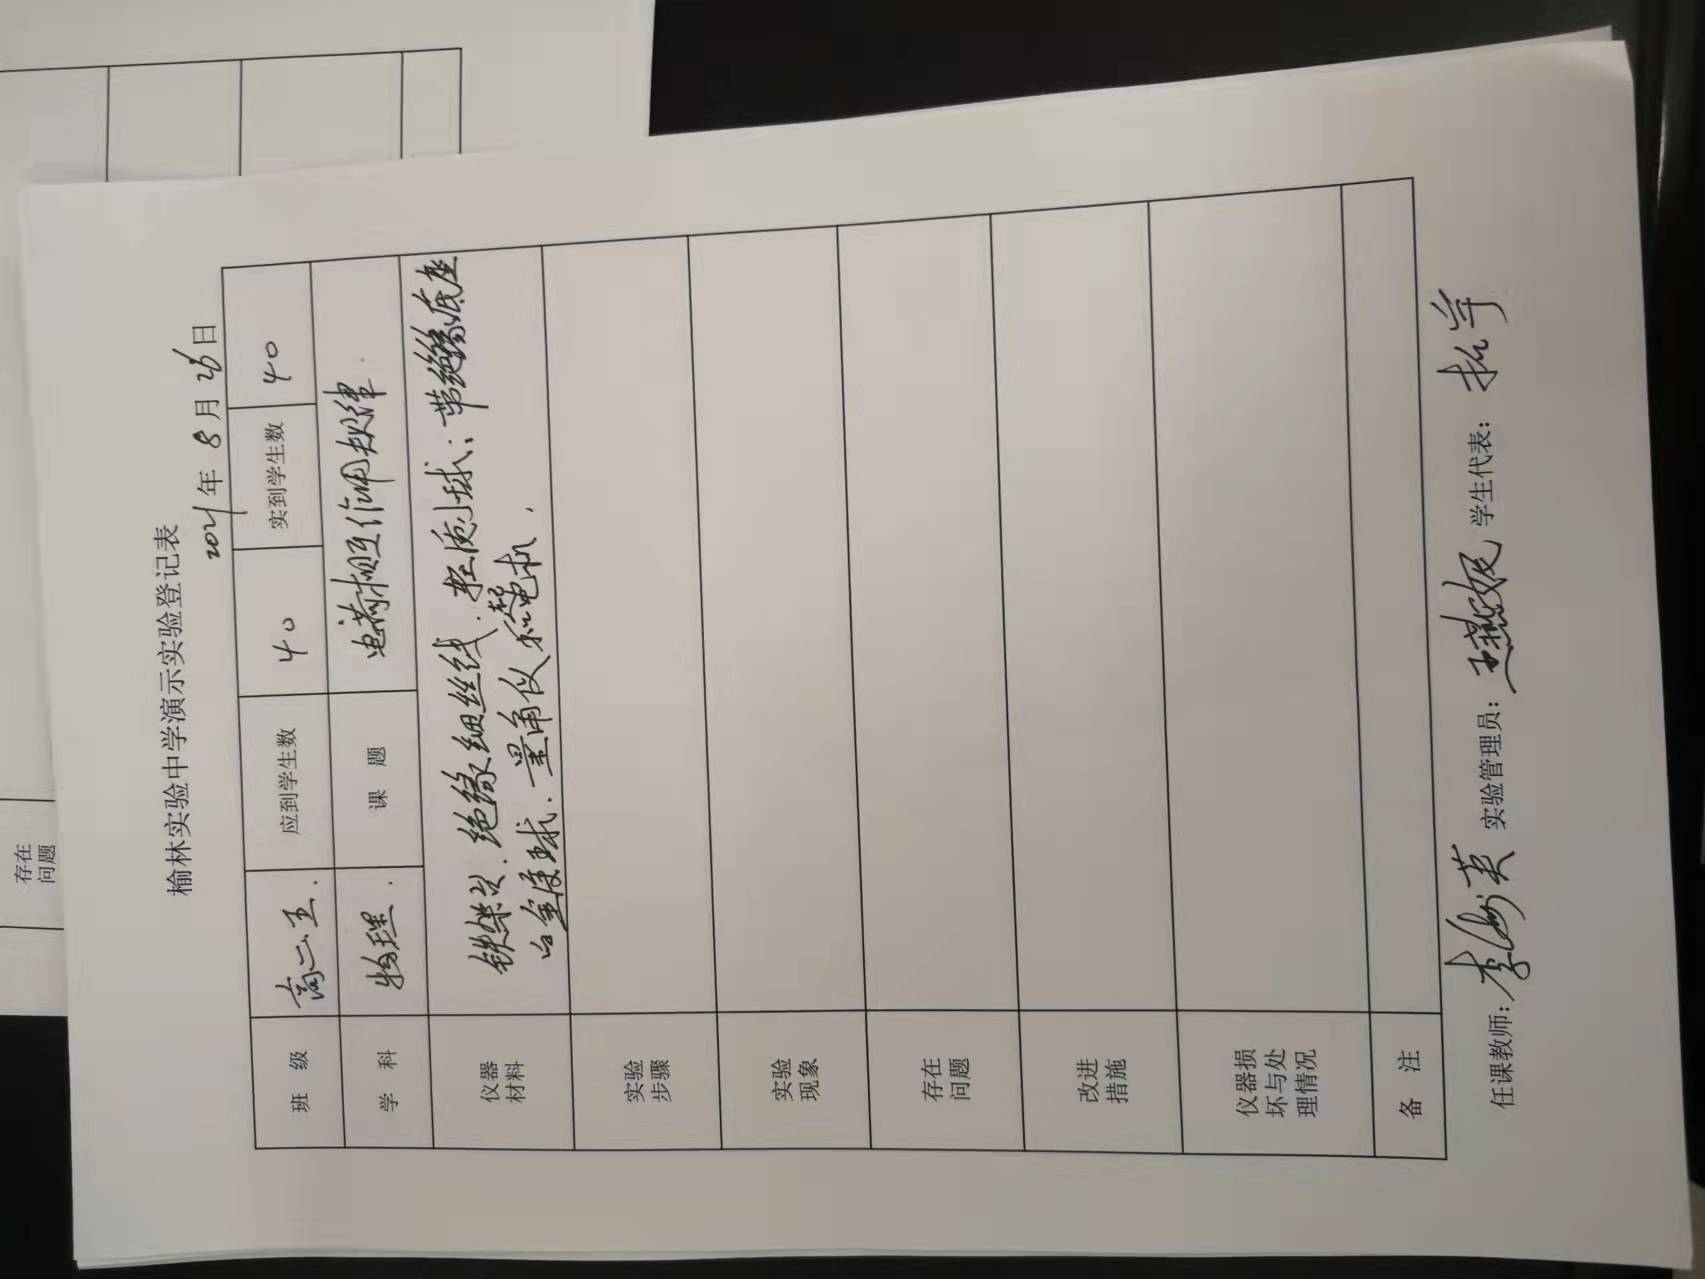 榆林实验中学演示实验登记表
2021年 8月 26日
班 级 高二五. 应到学生数 40 实到学生数 40
学 科 物理. 课 题 电荷相互作用规律.
仪器
材料
铁架台.绝缘细丝线.轻质小球;带绝缘底座
金属球.量角仪 感应起电机.
实验
步骤
实验
现象
存在
问题
改进
措施
仪器损
坏与处
理情况
备 注
任课教师: 李海英 实验管理员: 王燕妮 学生代表: 拓宇
存在
问题